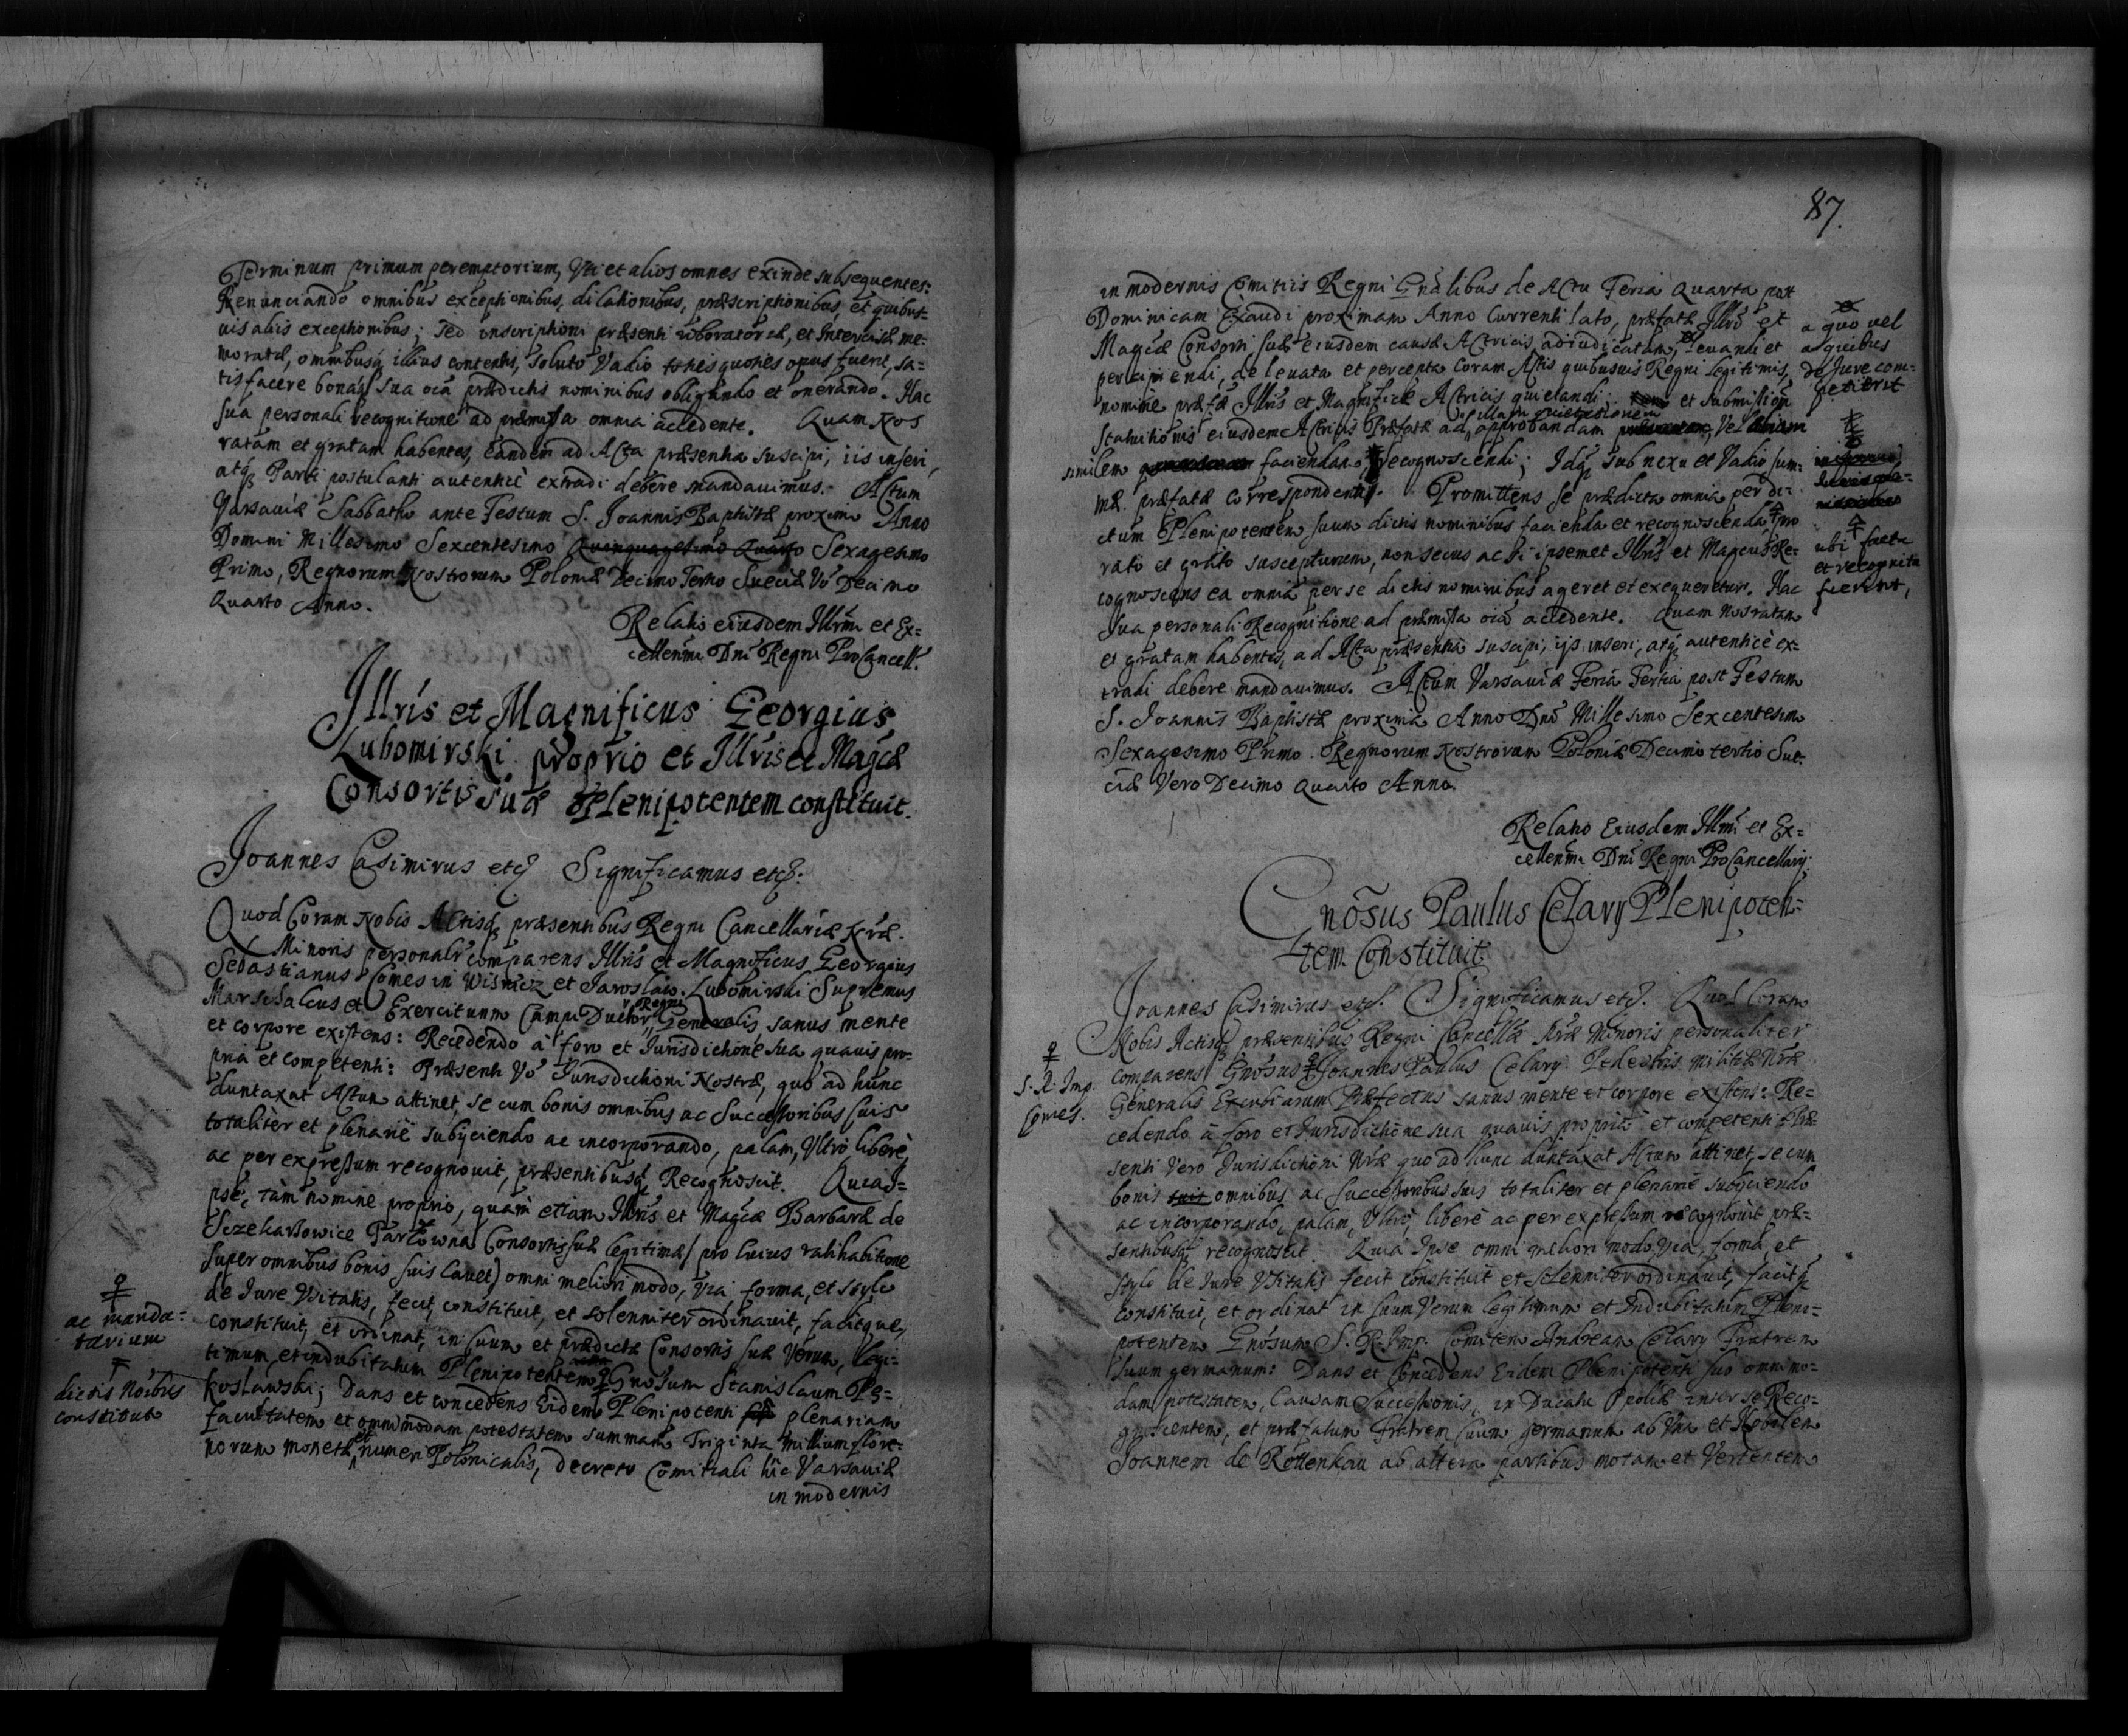 Terminum primum peremptorium, Vti et alios omnes exinde subsequentes:
Renunciando omnibus exceptionibus, dilationibus, præscriptionibus, et quibus=
uis aliis exceptionibus; sed inscriptioni præsenti roboratoriæ, et Intercisæ me=
moratæ, omnibusq₃ illius contentis, soluto Vadio toties quoties opus fuerit, sa=
tisfacere bonaq₃ sua oīa prædictis nominibus obligando et onerando. Hac
sua personali recognitione ad præmissa omnia accedente. Quam Nos
ratam et gratam habentes, Eandem ad Acta præsentia suscipi, iis inseri,
atq₃ Parti postulanti autenticè extradi debere mandauimus. Actum
Varsauiæ Sabbatho ante Festum S. Joannis Baptistæ proximo Anno
Domini Millesimo Sexcentesimo Quinquagesimo Quarto Sexagesimo
Primo, Regnorum Nostrorum Poloniæ Decimo Tertio Sueciæ Vō Decimo
Quarto Anno.
Relatio eiusdem Illrmi et Ex=
cellenmi Dni Regni ProCancell.
Illris et Magnificus Georgius
Lubomirski proprio et Illris et Magcæ
Consortis suæ Plenipotentem constituit.
Joannes Casimirus etc Significamus etc.
Quod Coram Nobis Actisq₃ præsentibus Regni Cancellariæ Nræ
Minoris personalr comparens Illris et Magnificus Georgius
Sebastianus Comes in Wisnicz et Jaroslaw Lubomirski Supremus
Marschalcus et Exercituum Campi Ductor Regni Generalis sanus mente
et corpore existens: Recedendo a foro et Jurisdictione sua quauis pro=
pria et competenti: Præsenti Vō Jurisdictioni Nostræ, quo ad hunc
duntaxat Actum attinet, se cum bonis omnibus ac Successoribus suis
totaliter et plenariè subijciendo ac incorporando, palam, Vltrò liberè,
ac per expressum recognouit, præsentibusq₃ Recognoscit. Quia I=
pse, tàm nomine proprio, quàm etiam Illris et Magcæ Barbaræ de
Sczekarzowice Tarłówna Consortis suæ legitimæ / pro huius ratihabitione
super omnibus bonis suis Cauet) omni meliori modo, Via, forma, et stylo
de Jure Vsitatis, fecit, constituit, et solenniter ordinauit, facitque,
constituit, et ordinat, in suum et prædictæ Consortis suæ Verum, legi=
timum, et indubitatum Plenipotentem Gnosum Stanislaum Pę=
koslawski; Dans et concedens Eidem Plenipotenti plenariam
facultatem et omnimodam potestatem summam Triginta Millium flore=
norum monetæ et numeri Polonicalis, decreto Comitiali hîc Varsauiæ
in modernis
ac manda=
tarium
dictis Noibus
constituto
87.
in modernis Comitiis Regni Gnalibus de Actu Feria Quarta post
Dominicam Exaudi proximam Anno Currenti lato, præfatæ Illris et
Magcæ Consorti suæ eiusdem causæ Actricis adiudicatam, leuandi et
percipiendi, de leuata et percepta Coram Actis quibusuis Regni legitimis,
nomine præfæ Illris et Magnificæ Actricis quietandi; et submissionem
Statuitionis eiusdem Actricis Præfatæ ad illam quietationem approbandam Vel aliam
similem faciendam recognoscendi; Idq₃ sub nexu et Vadio sum=
mæ præfatæ correspondenti. Promittens se prædicta omnia per di=
ctum Plenipotentem suum dictis nominibus facienda et recognoscenda, pro
rato et grato suscepturum, non secus ac si ipsemet Illris et Magcus Re=
cognoscens ea omnia per se dictis nominibus ageret et exequeretur. Hac
Sua personali Recognitione ad præmissa oia accedente. Quam Nos ratam
et gratam habentes, ad Acta præsentia suscipi, ijs inseri, atq₃ autenticè ex=
tradi debere mandauimus. Actum Varsauiæ Feria Tertia post Festum
S. Joannis Baptistæ proxima Anno Dni Millesimo Sexcentesimo
Sexagesimo Primo. Regnorum Nostrorum Poloniæ Decimo tertio Sue=
ciæ Vero Decimo Quarto Anno.
a quo vel
a quibus
de Jure com=
petierit
ubi facta
et recognita
fuerint,
Relatio Eiusdem Illmi et Ex=
cellenmi Dni Regni ProCancellarij.
Gnōsus Paulus Celary Plenipoten=
tem Constituit
Joannes Casimirus etc. Significamus etc. Quod Coram
Nobis Actisq₃ præsentibus Regni Cancellæ Nræ Minoris personaliter
comparens Gnōsus Joannes Paulus Celary Pedestris militiæ Nræ
Generalis Excubiarum Præfectus sanus mente et corpore existens: Re=
cedendo à foro et Jurisdictione sua quauis propria et competenti Præ=
senti Vero Jurisdictioni Nræ quo ad hunc duntaxat Actum attinet, se cum
bonis suis omnibus ac Successoribus suis totaliter et plenariè subijciendo
ac incorporando, palam, Vltrò, liberè ac per expressum recognouit præ=
sentibusq₃ recognoscit Quia Ipse omni meliori modo, Via, forma, et
stylo de Jure Vsitatis fecit constituit et solenniter ordinauit, facitq₃
constituit, et ordinat in suum Verum legitimum et Indubitatum Pleni=
potentem Gnōsum S. R. Imp. Comitem Andream Celary Fratrem
suum germanum: Dans et Concedens Eidem Plenipotenti suo omnimo=
dam potestatem, Causam Successionis, in Ducatu Opoliæ inter se Reco=
gnoscentem, et præfatum Fratrem suum germanum ab Vna et Nobilem
Joannem de Rottenkau ab altera partibus motam et Vertentem
S. R. Imp.
Comes.